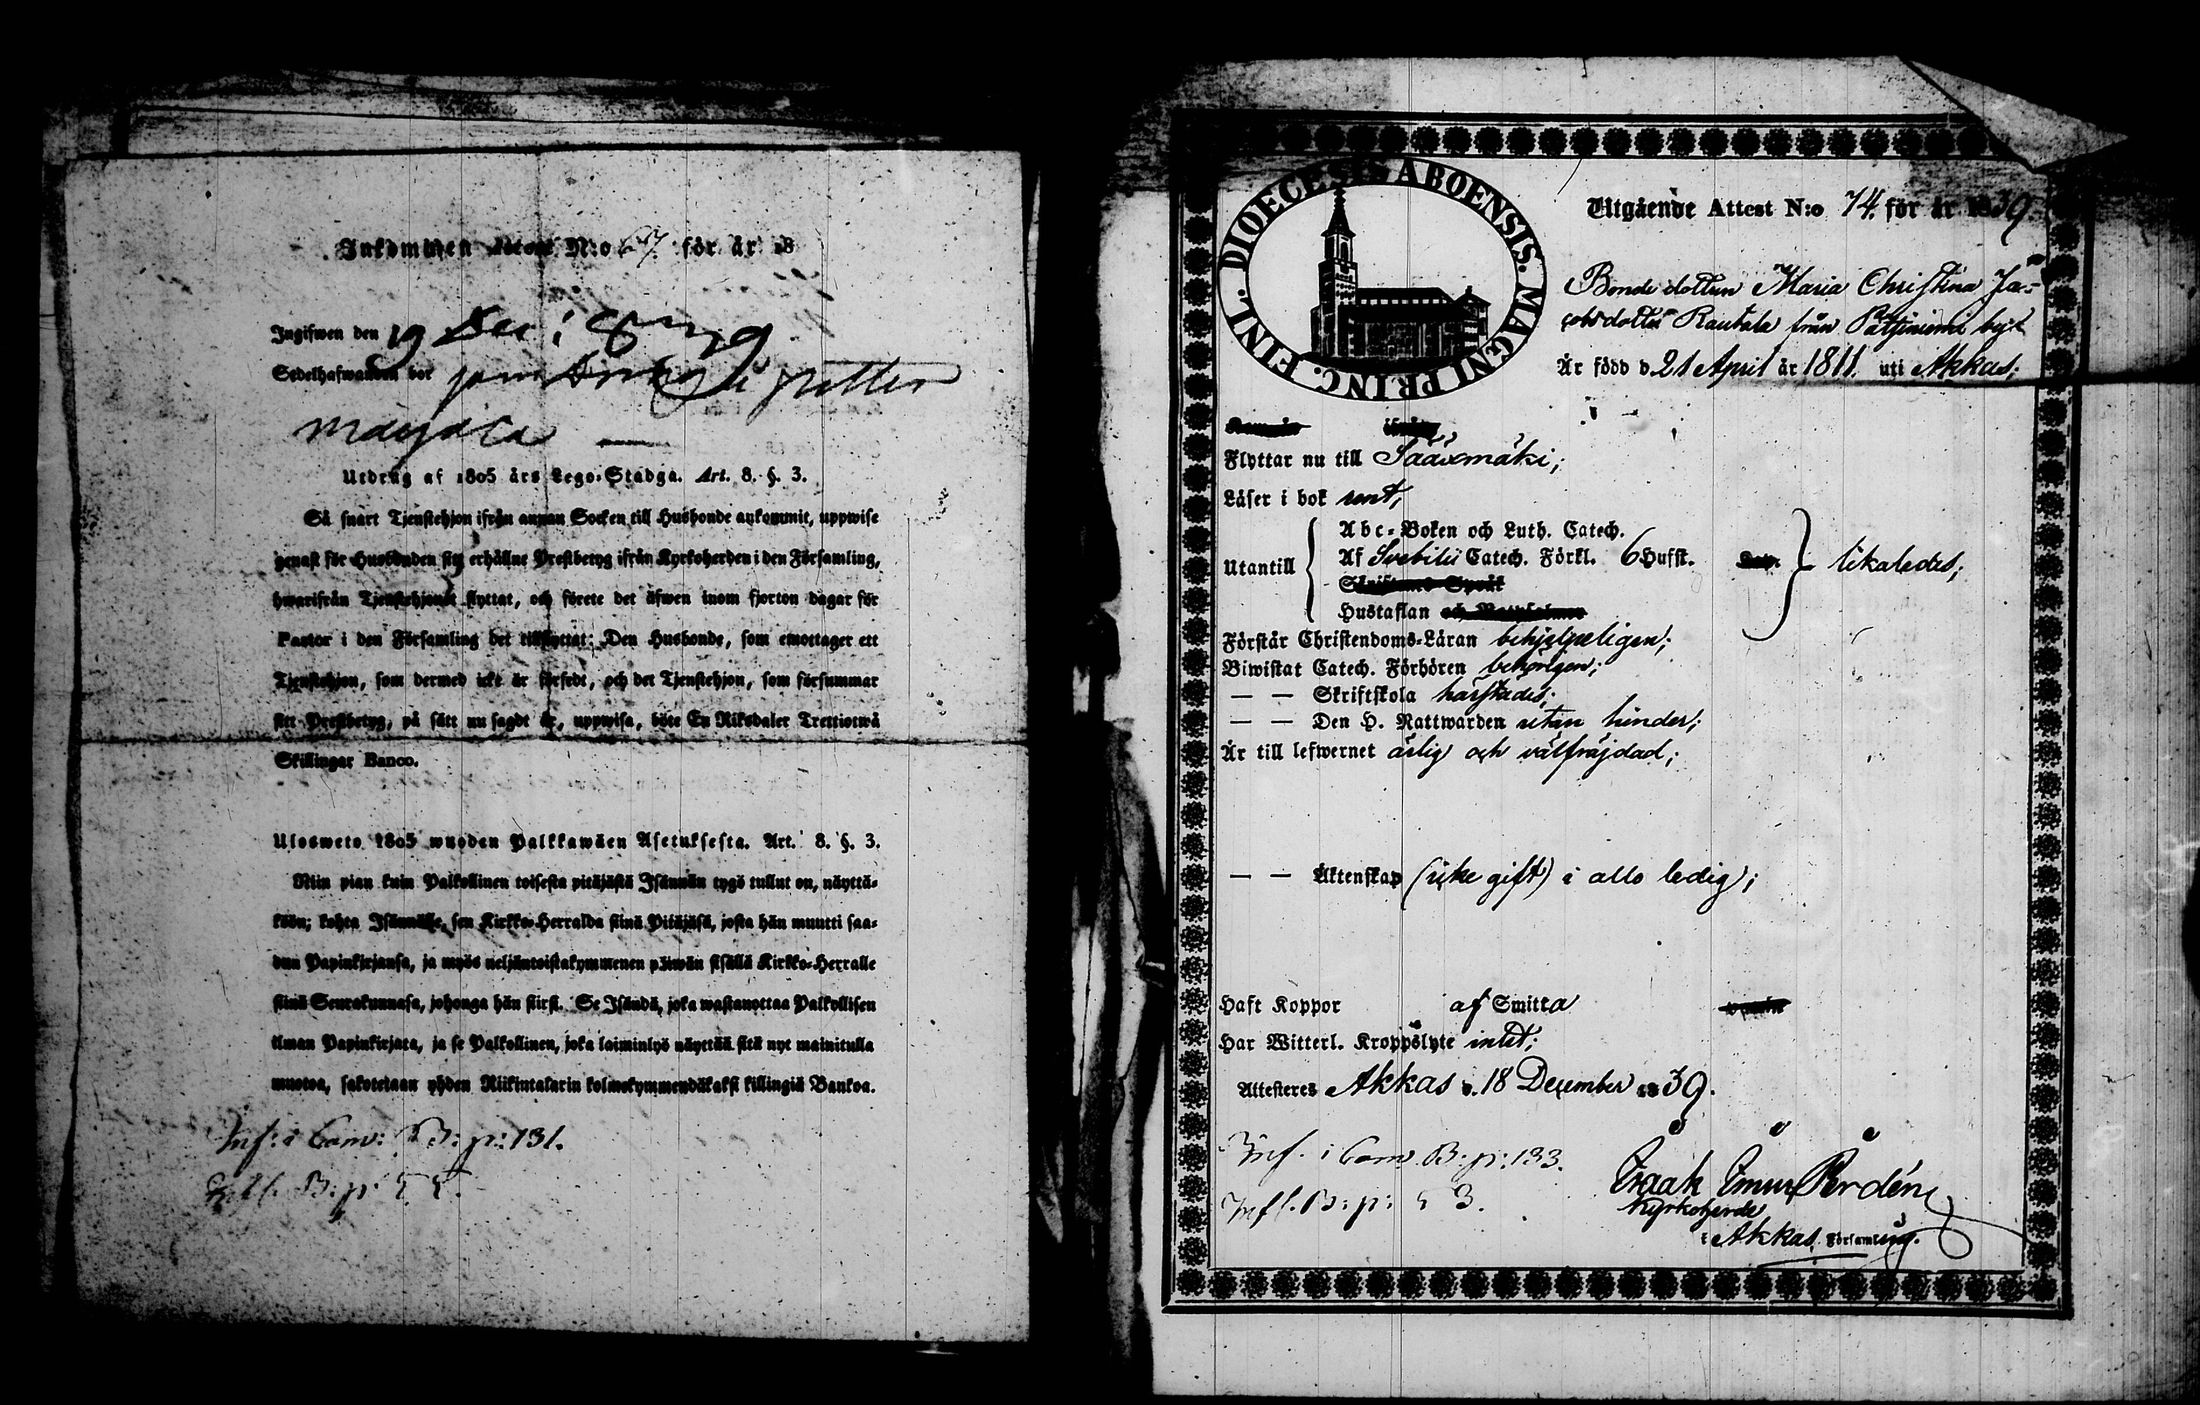 Inkommen Attest N:o 67. för år 18
Ingifwen den 19 Dec:
Sedelhafwanden bor
Utdrag af 1805 års Lego-Stadga. Art. 8. §. 3.
Så snart Tjenstehjon ifrån annan Socken till Husbonde ankommit, uppwise
genast för Husbonden sitt erhållne Prestbetyg ifrån Kyrkoherden i den Församling,
hwarifrån Tjenstehjonet flyttat, och förete det äfwen inom fjorton dagar för
Pastor i den Församling det tillflyttat; Den Husbonde, som emottager ett
Tjenstehjon, som dermed icke är försedt, och det Tjenstehjon, som försummar
sitt Prestbetyg, på sätt nu sagdt är, uppwisa, böte En Riksdaler Trettiotwå
Skillingar Banco.
Ulosweto 1805 wuoden Palkkawäen Asetuksesta. Art. 8. §. 3.
Niin pian kuin Palkollinen toisesta pitäjästä Isännän tygö tullut on, näyttä-
köön; kohta Isännälle, sen Kirkko-Herralda siinä Pitäjäsä, josta hän muutti saa-
dun Papinkirjansa, ja myös neljäntoistakymmenen päiwän sisällä Kirkko-Herralle
siinä Seurakunnasa, johonga hän siirsi. Se Isändä, joka wastanottaa Palkollisen
ilman Papinkirjata, ja se Palkollinen, joka laiminlyö näyttää sitä nyt mainitulla
muotoa, sakotetaan yhden Riikintalarin kolmekymmendäkaksi killingiä Bankoa.
Inf: i Com: B: p: 131.
B: p:
DIOECESIS ABOENSIS. MAGNI PRINC. FINL.
Utgående Attest N:o 74. för år 1839.
Bonde dottren Maria Christina Ja-
cobsdotter Rautala från by
Är född d. 21 April år 1811. uti Akkas;
Flyttar nu till Sääxmäki;
Läser i bok rent,
Abc-Boken och Luth. Catech.
Utantill Af Svebilii Catech. Förkl. 6 Hufst. likaledes;
Hustaflan
Förstår Christendoms-Läran behjelpeligen;
Biwistat Catech. Förhören behörigen;
— — Skriftskola härstädes;
— — Den H. Nattwarden utan hinder;
Är till lefwernet ärlig och välfräjdad;
— — Äktenskap (icke gift) i allo ledig;
Haft Koppor af Smitta
Har Witterl. Kroppslyte intet;
Attesteres Akkas d. 18 December 1839.
Inf. i Com. B: p: 133.
Inf l. B: p: 3.
Isaak
Kyrkoherde
i Akkas Församling.